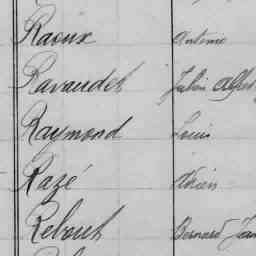 Raoux Antime
Ravaudet Julien Alfred
Raymond Louis
Razé
Rebout Bernard Jean